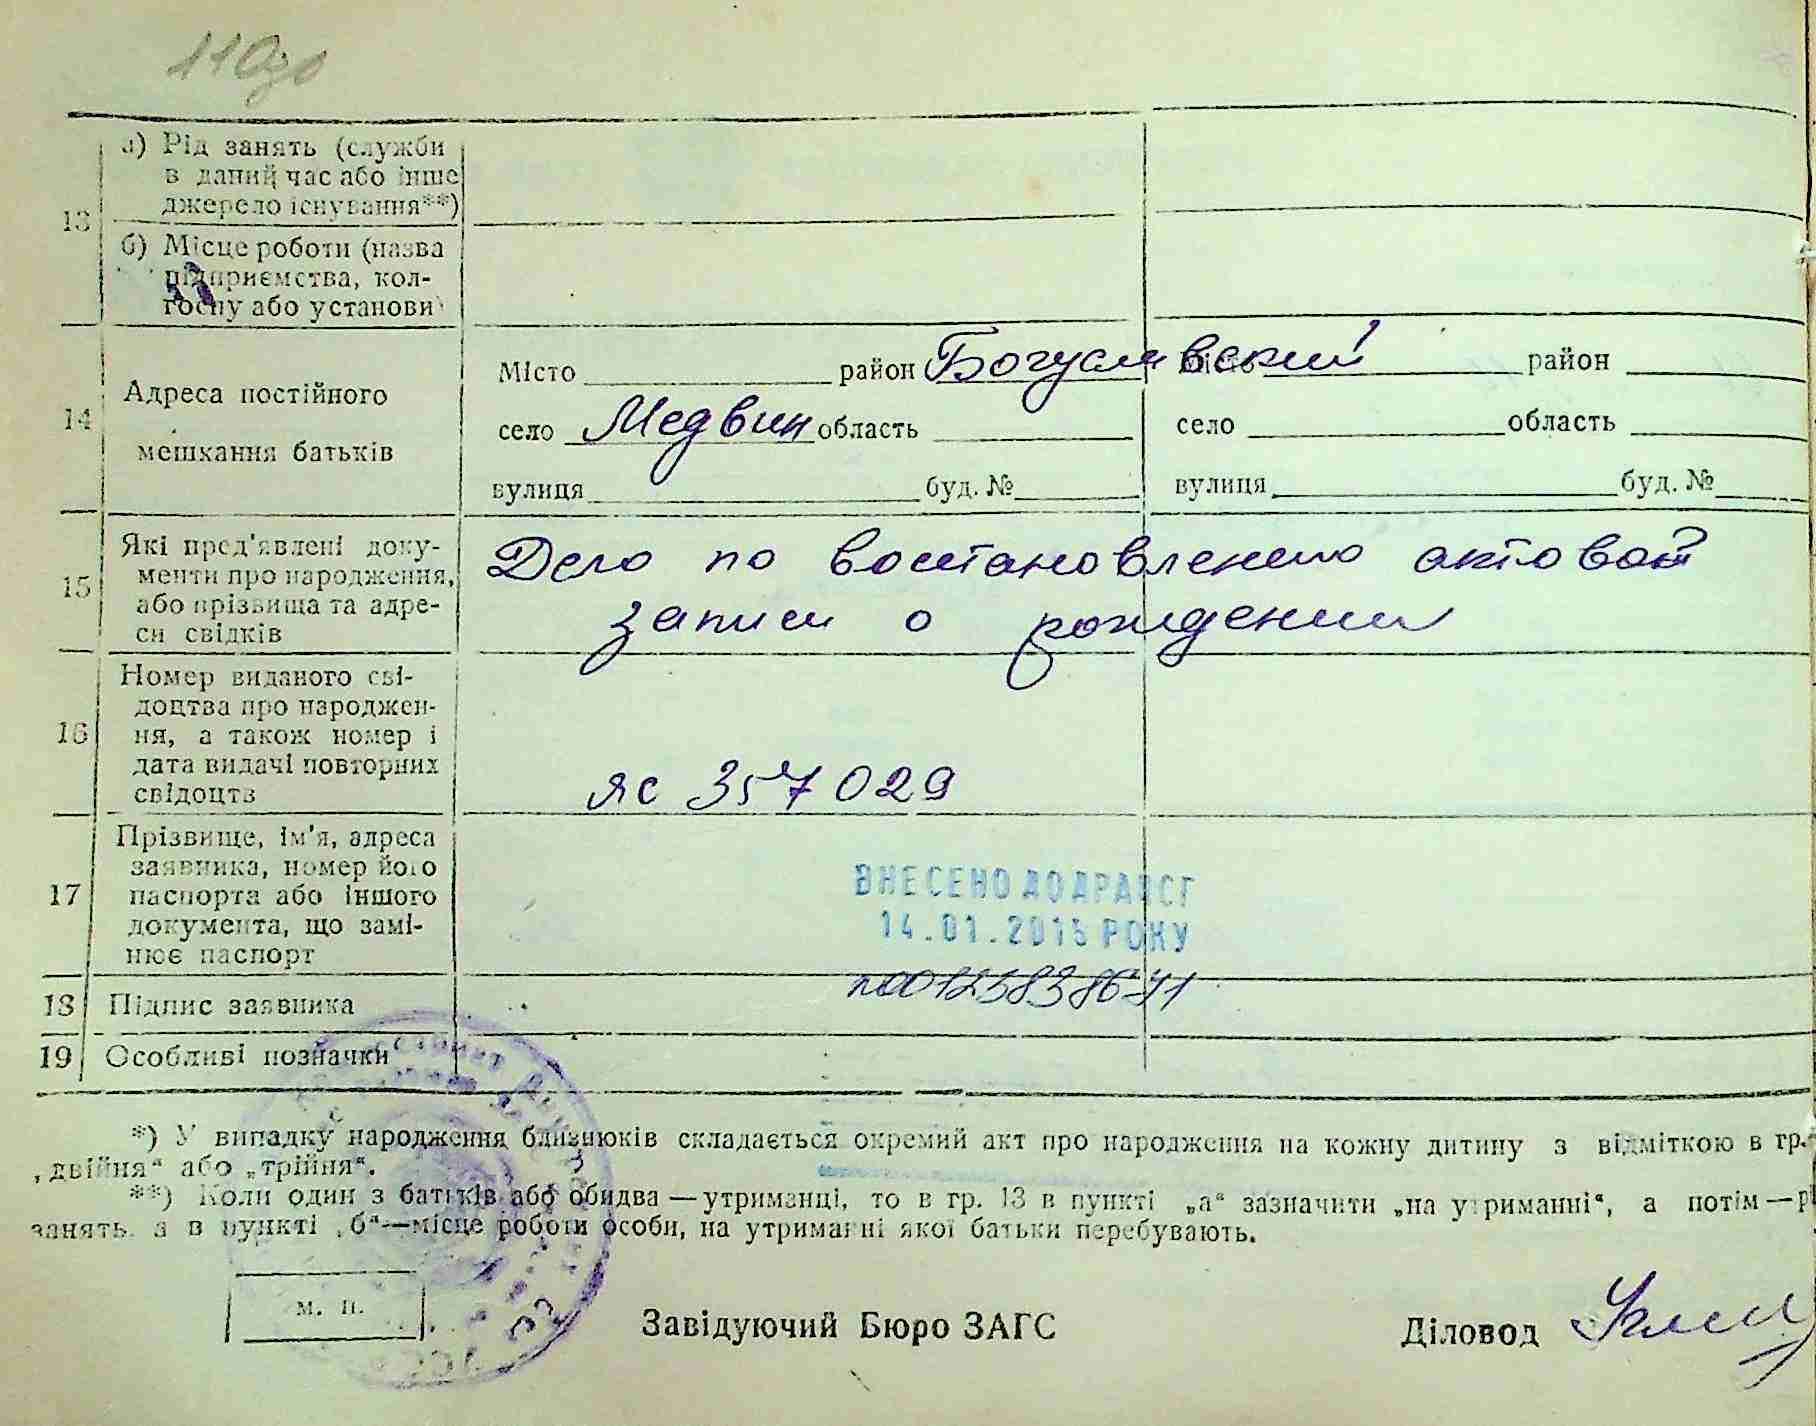 110зв
а) Рід занять (служби
в даний час або інше
джерело існування**)
13
б) Місце роботи (назва
підприємства, кол-
госпу або установи)
14
Адреса постійного
мешкання батьків
Місто район Богуславский
село Медвин область
вулиця буд. №
Місто район
село область
вулиця буд. №
15
Які пред'явлені доку-
менти про народження,
або прізвища та адре-
си свідків
Дело по восстановлению актовой
записи о рождении
16
Номер виданого сві-
доцтва про народжен-
ня, а також номер і
дата видачі повторних
свідоцтв
ЯС 357029
17
Прізвище, ім'я, адреса
заявника, номер його
паспорта або іншого
документа, що замі-
нює паспорт
ВНЕСЕНО ДО ДРАЦСГ
14.01.2015 РОКУ
18 Підпис заявника
19 Особливі позначки
*) У випадку народження близнюків складається окремий акт про народження на кожну дитину з відміткою в гр.
„двійня“ або „трійня“.
**) Коли один з батьків або обидва — утриманці, то в гр. 13 в пункті „а“ зазначити „на утриманні“, а потім — р
занять, а в пункті „б“ — місце роботи особи, на утриманні якої батьки перебувають.
м. п.
Завідуючий Бюро ЗАГС
Діловод